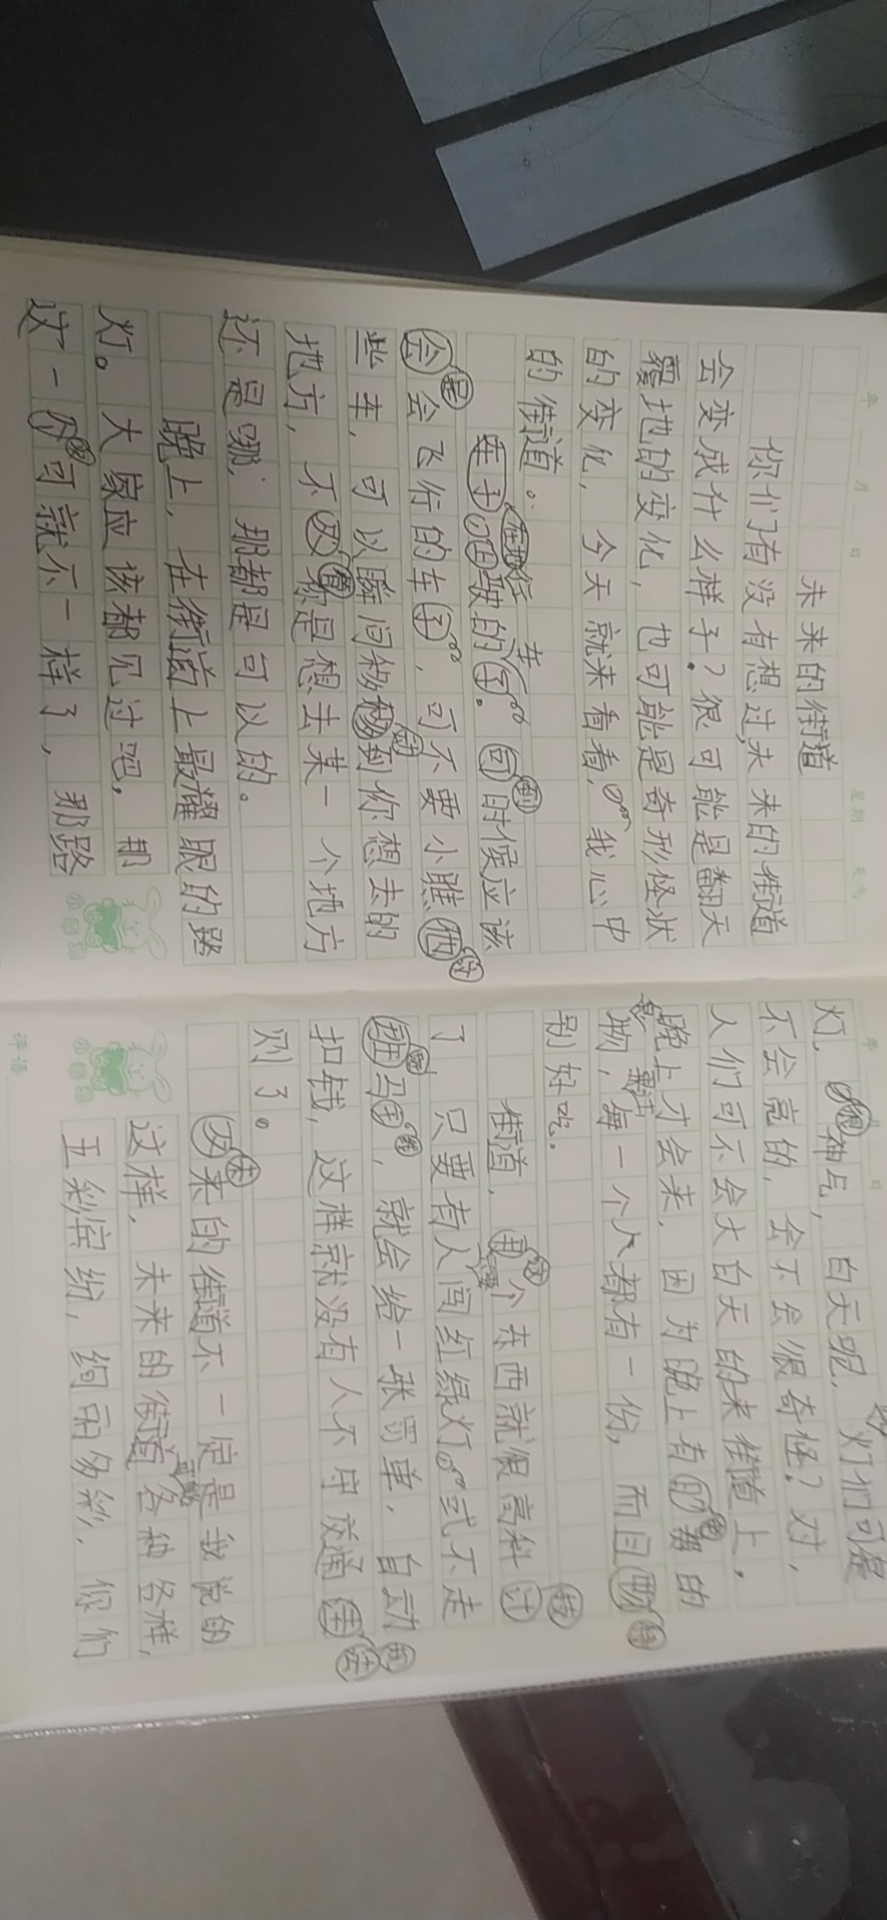 年 月 日 星期 天气
未来的街道
你们有没有想过,未来的街道
会变成什么样子?很可能是翻天
覆地的变化,也可能是奇形怪状
的变化,今天就来看看,我心中
的街道。
在地行 车
驶的 。 时候应该 到
会飞行的车,可不要小瞧 是
些车,可以瞬间移到你想去的 动 这
地方,不你是想去某一个地方 管
还是哪,那都是可以的。
晚上,在街道上最耀眼的路
灯。大家应该都见过吧,那
这一可就不一样了,那路
年 月 日
灯,神气,白天呢,灯们可是 很
不会亮的,会不会很奇怪?对,
人们可不会大白天的来街道上,
晚上才会来,因为晚上有的
物,每一个人都有一份,而且 食 特
别好吃。
街道,个东西就很高科 这 技
了 只要有人闯红绿灯或不走
马,就会给一张罚单,自动
扣钱,这样就没有人不守交通 法
则了。
来的街道不一定是我说的 未
这样,未来的街道各种各样,
五彩缤纷,绚丽多彩,你们
评语